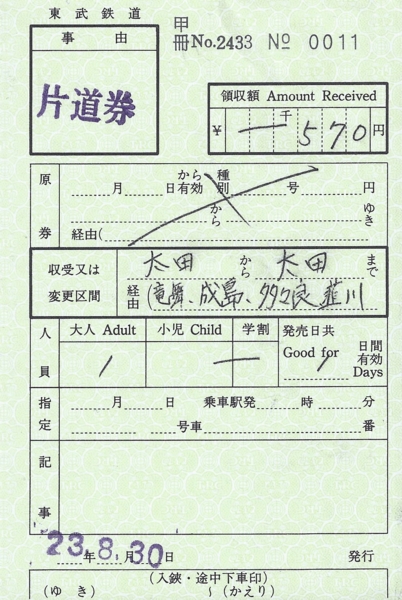 東武鉄道
甲
冊No.2433 № 0011
事由
片道券
領収額 Amount Received
¥ 一千570円
原券
から 種
月 日有効 別 号 円
から ゆき
経由(
収受又は変更区間
太田から太田まで
経由(竜舞、成島、多々良 韮川
人員
大人 Adult 小児 Child 学割 発売日共
1 一 Good for 1 日間有効 Days
指定
月 日 乗車駅発 時 分
号車 番
記事
23年8月30日 発行
(入鋏・途中下車印)
(ゆき) 〜 (かえり)